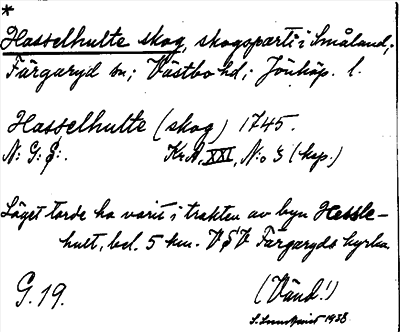 *
Hasselhulte skog, skogsparti i Småland;
Färgaryd sn; Västbo hd; Jönköp. l.
Hasselhulte (skog) 1745.
N: G: S:. Kr.A. XXI, N:o 3 (kop.)
Läget torde ha varit i trakten av byn Hessle-
hult, bel. 5 km. VSV Färgaryds kyrka.
G. 19. (Vänd!)
1938